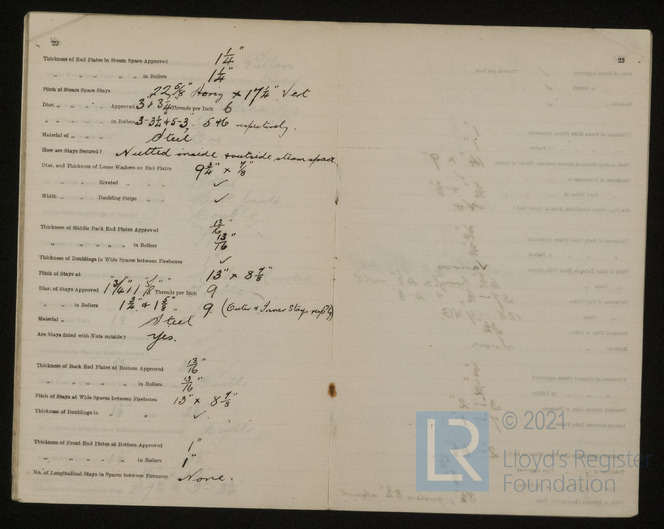 22
Thickness of End Plates in Steam Space Approved 1 1/4"
" " " " " in Boilers 1 1/4"
Pitch of Steam Space Stays 22 5/8" Horiz x 17 1/4" Vert
Diar. " " " " Approved 3 & 3 1/4" Threads per Inch 6
" " " " in Boilers 5 & 6 respectively.
Material of " " " Steel
How are Stays Secured? Nutted inside & outside steam space
Diar. and Thickness of Loose Washers on End Plates 9 3/4" x 7/8"
" " Riveted " " ✓
Width " " Doubling Strips " " ✓
Thickness of Middle Back End Plates Approved 13/16"
" " " " " in Boilers 13/16"
Thickness of Doublings in Wide Spaces between Fireboxes ✓
Pitch of Stays at " " " 13" x 8 7/8"
Diar. of Stays Approved Threads per Inch 9
" " in Boilers 1 3/4" & 1 5/8" 9 (Outer & Inner Stays resply)
Material " Steel
Are Stays fitted with Nuts outside? Yes.
Thickness of Back End Plates at Bottom Approved 13/16"
" " " " " in Boilers 13/16"
Pitch of Stays at Wide Spaces between Fireboxes 13" x 8 7/8"
Thickness of Doublings in " " ✓
Thickness of Front End Plates at Bottom Approved 1"
" " " " " in Boilers 1"
No. of Longitudinal Stays in Spaces between Furnaces None.
23
LR
© 2021
Lloyd's Register
Foundation